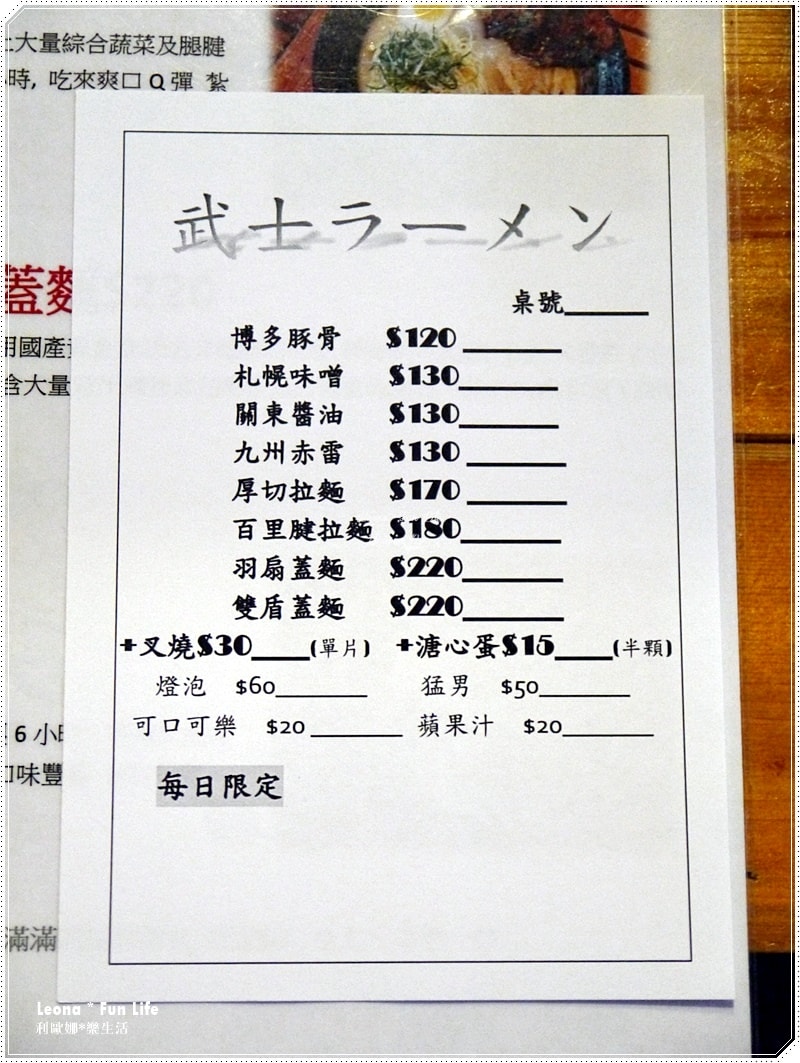 大量綜合蔬菜及腿腱
時, 吃來爽口 Q 彈 紮
武士ラーメン
蓋麵
桌號______
用國產
含大量
博多豚骨 $120 ______
札幌味噌 $130______
關東醬油 $130______
九州赤雷 $130 ______
厚切拉麵 $170 ______
百里腱拉麵 $180______
羽扇蓋麵 $220______
雙盾蓋麵 $220______
+叉燒$30____(單片) +溏心蛋$15____(半顆)
燈泡 $60______ 猛男 $50______
可口可樂 $20 ______ 蘋果汁 $20______
6 小時
口味豐
每日限定
滿滿
Leona * Fun Life
利歐娜*樂生活